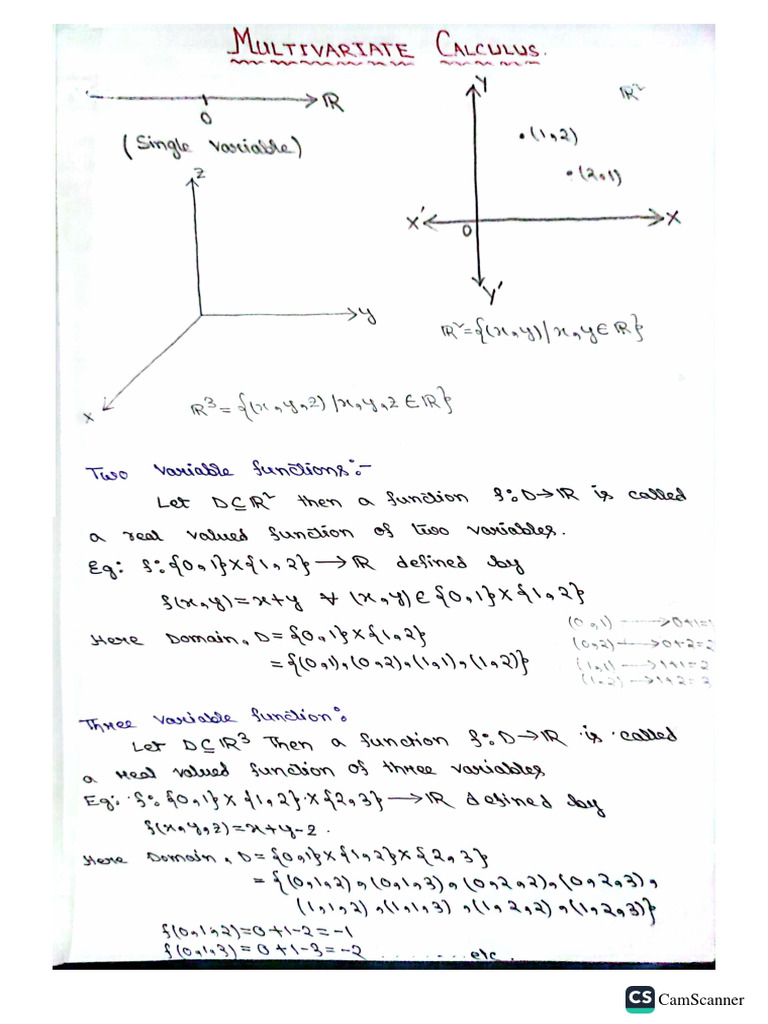 MULTIVARIATE CALCULUS.
0 R
(Single variable)
Y R²
•(1,2)
•(2,1)
X' 0 X
Y'
R²={(x,y)/x,y∈R}
z
y
x
R³={(x,y,z)/x,y,z∈R}
Two variable functions:-
Let D⊆R² then a function f:D→R is called
a real valued function of two variables.
Eg: f:{0,1}×{1,2}→R defined by
f(x,y)=x+y ∀ (x,y)∈{0,1}×{1,2}
Here Domain, D={0,1}×{1,2}
={(0,1),(0,2),(1,1),(1,2)}
(0,1)→0+1=1
(0,2)→0+2=2
(1,1)→1+1=2
(1,2)→1+2=3
Three variable function:
Let D⊆R³ Then a function f:D→R is called
a real valued function of three variables
Eg: f:{0,1}×{1,2}×{2,3}→R defined by
f(x,y,z)=x+y-z.
Here Domain, D={0,1}×{1,2}×{2,3}
={(0,1,2),(0,1,3),(0,2,2),(0,2,3),
(1,1,2),(1,1,3),(1,2,2),(1,2,3)}
f(0,1,2)=0+1-2=-1
f(0,1,3)=0+1-3=-2 ......... etc.
CS CamScanner